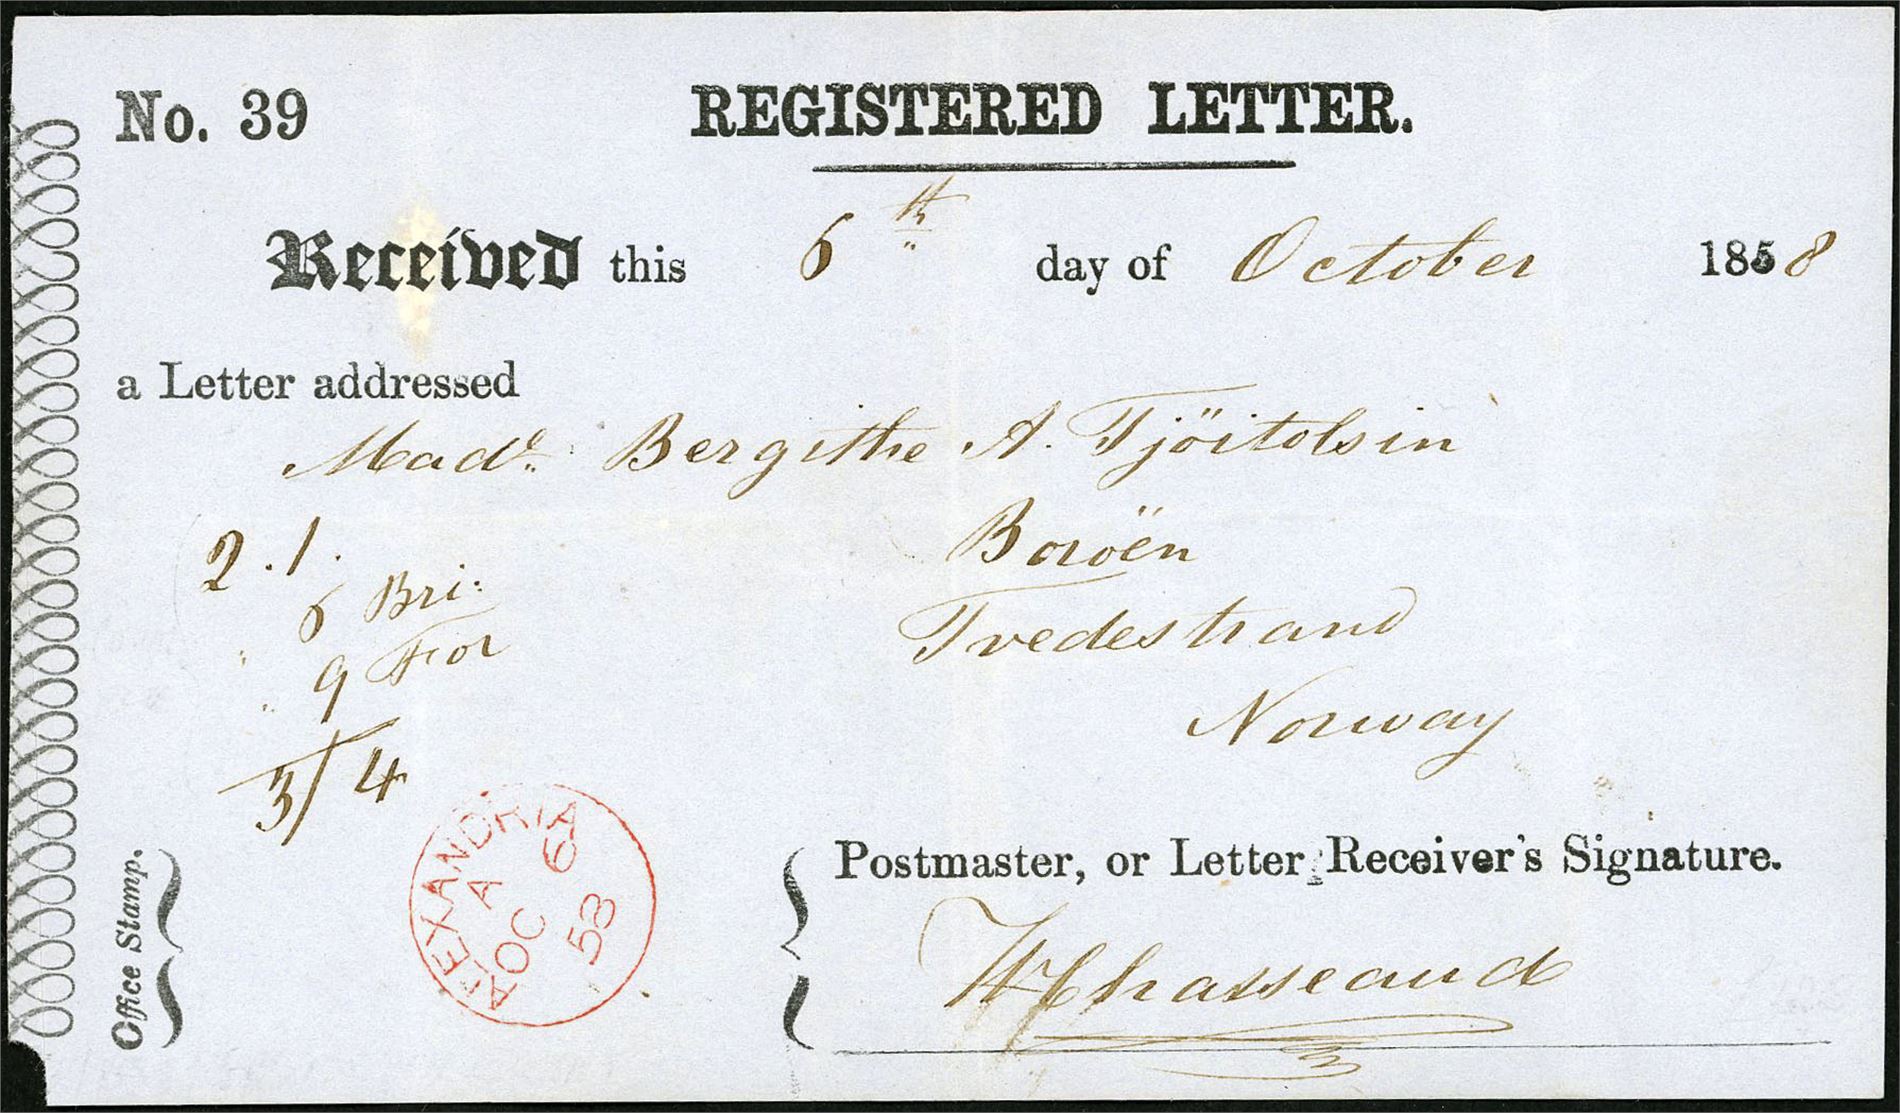 No. 39
REGISTERED LETTER.
Received this 6th day of October 1858
a Letter addressed
Made. Bergithe A. Tjöitolsin
Boröen
Tvedestrand
Norway
2.1.
6 Bri:
9 For
3/4
ALEXANDRIA
A 6
OC 58
Office Stamp.
Postmaster, or Letter Receiver's Signature.
Chasseaud